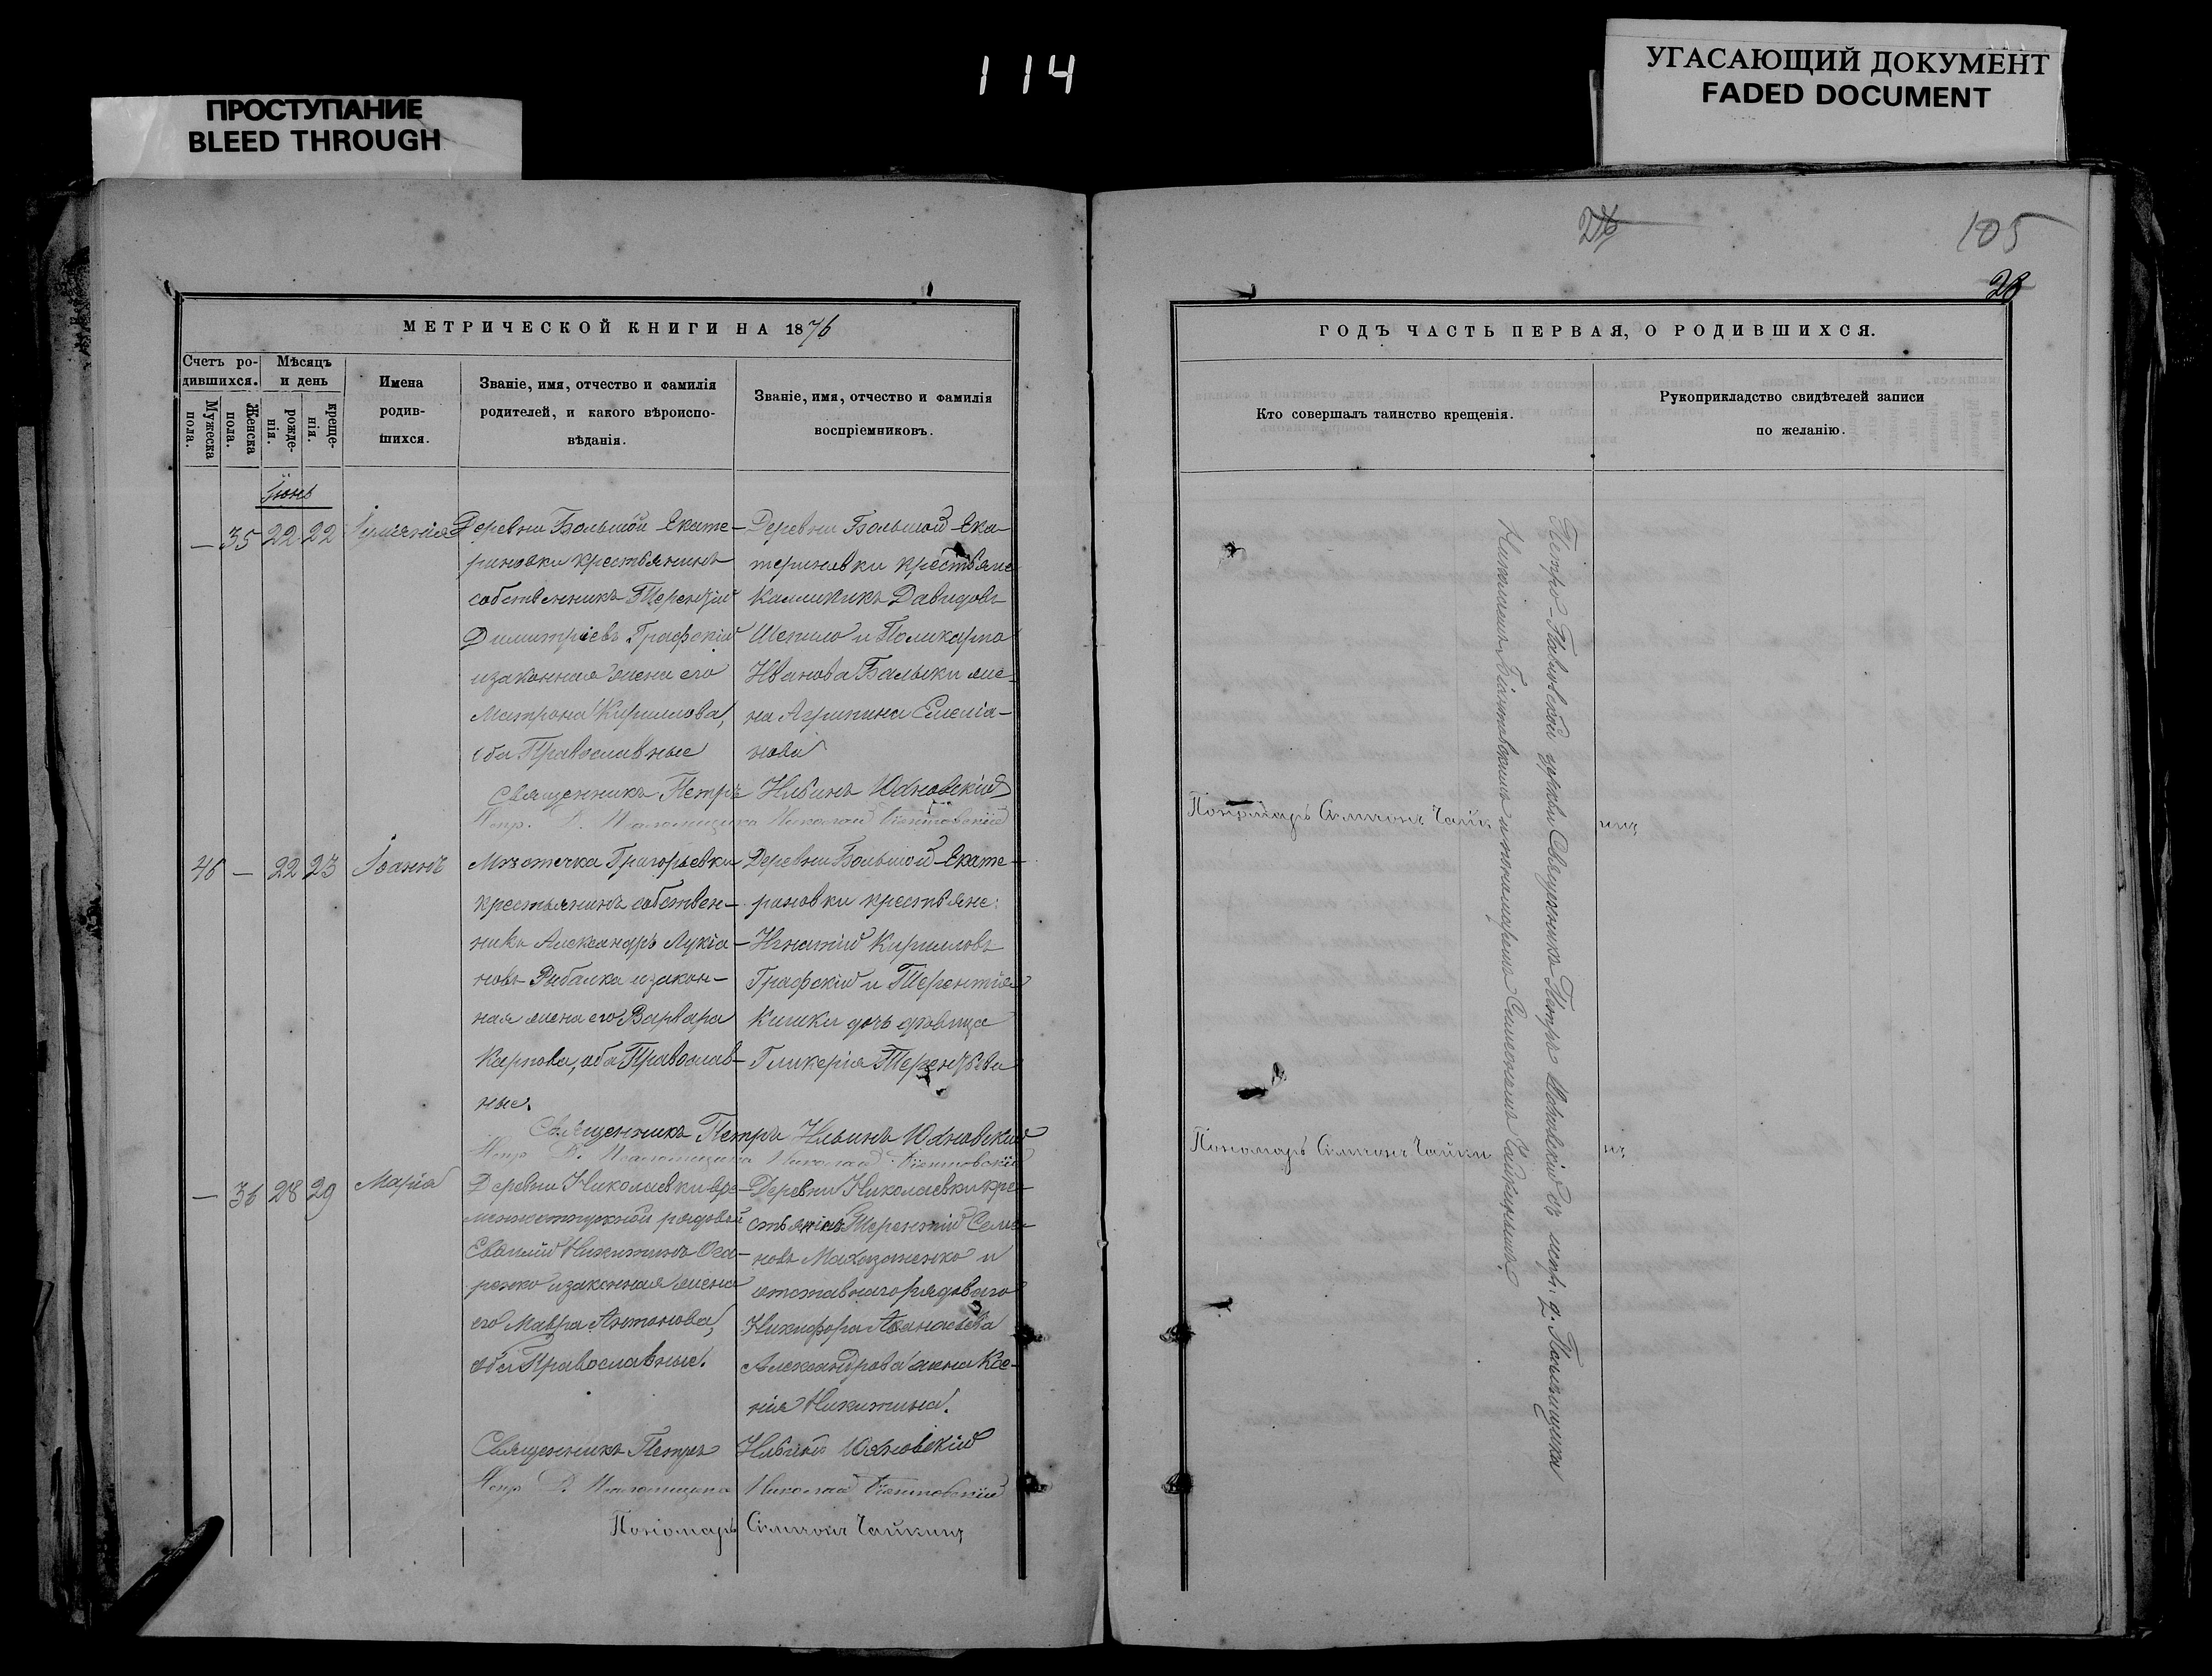 114
ПРОСТУПАНИЕ
BLEED THROUGH
УГАСАЮЩИЙ ДОКУМЕНТ
FADED DOCUMENT
105
28
МЕТРИЧЕСКОЙ КНИГИ НА 1876
Счетъ ро-
дившихся.
Мужеска
пола.
Женска
пола.
Мѣсяцъ
и день
рожде-
нія.
креще-
нія.
Имена
родив-
шихся.
Званіе, имя, отчество и фамилія
родителей, и какого вѣроиспо-
вѣданія.
Званіе, имя, отчество и фамилія
воспріемниковъ.
Іюнь
— 35 22 22
Деревни Большой Екате-
риновки крестьянинъ
собственникъ Терентій
Димитріевъ Графскій
и законная жена его
Матрона Кириллова,
оба Православные
Деревни Большой Ека-
териновки крестьяне
Каллиникъ Давидовъ
Шепило и Поликарпа
Иванова Балыки же-
на Агрипина Емелiа-
нова
Священникъ Петръ Ильинъ Юхновскій
Испр. д. Псаломщика Николай
Пономарь Симеонъ Чайкинъ
46 — 22 23 Іоаннъ
Мѣстечка Григорьевки
крестьянинъ собствен-
никъ Александръ Лукіа-
новъ Рибалка и закон-
ная жена его Варвара
Карпова, оба Православ-
ные.
Деревни Большой Екате-
риновки крестьяне:
Игнатій Кирилловъ
Графскій и Терентія
Кишки дочь дѣвица
Гликерія Терентьева
Священникъ Петръ Ильинъ Юхновскій
Испр. д. Псаломщика Николай
Пономарь Симеонъ Чайкинъ
— 36 28 29 Марія
Деревни Николаевки вре-
менноотпускной рядовой
Евѳимій Никитинъ
и законная жена
его Мавра Антонова,
оба Православные.
Деревни Николаевки кре-
стьянинъ Терентій Семе-
новъ и
отставнаго рядоваго
Никифора Аѳанасьева
Александрова жена Ксе-
нія Никитина.
Священникъ Петръ Ильинъ Юхновскій
Испр. д. Псаломщика Николай
Пономарь Симеонъ Чайкинъ
ГОДЪ ЧАСТЬ ПЕРВАЯ, О РОДИВШИХСЯ.
Кто совершалъ таинство крещенія.
Рукоприкладство свидѣтелей записи
по желанію.
Петро-Павловской церкви Священникъ Петръ Юхновскій съ испр. д. Псаломщика
и пономаремъ Симеономъ Чайкинымъ.